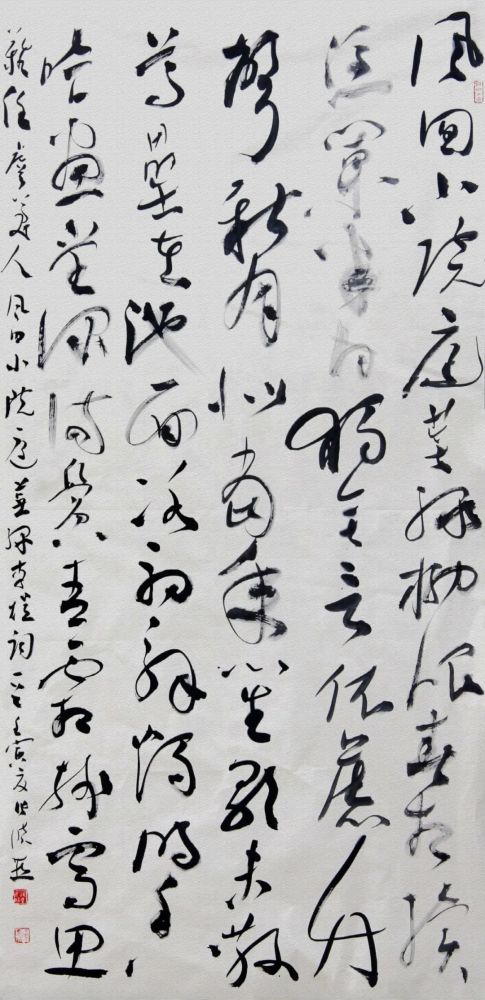 風回小院庭蕪綠柳眼春相續
憑闌半日獨無言依舊竹
聲新月似當年笙歌未散
尊罍在池面冰初解燭明香
暗畫堂深滿鬢青霜殘雪思
難任虞美人風回小院庭蕪綠李煜詞一首壬寅夏